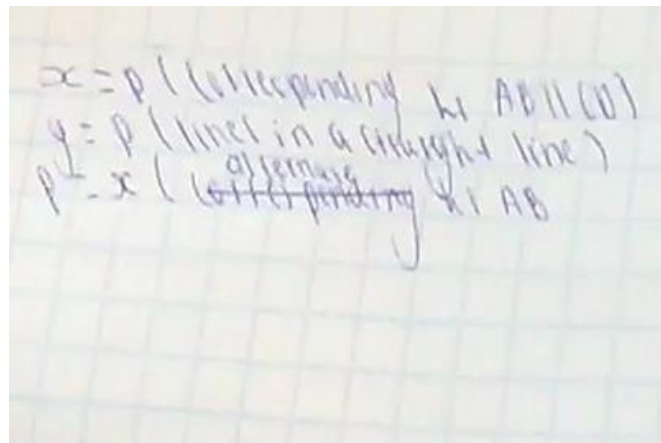 x = p (corresponding ∠s AB || CD)
y = p (lines in a straight line)
p = x (alternate ∠s AB